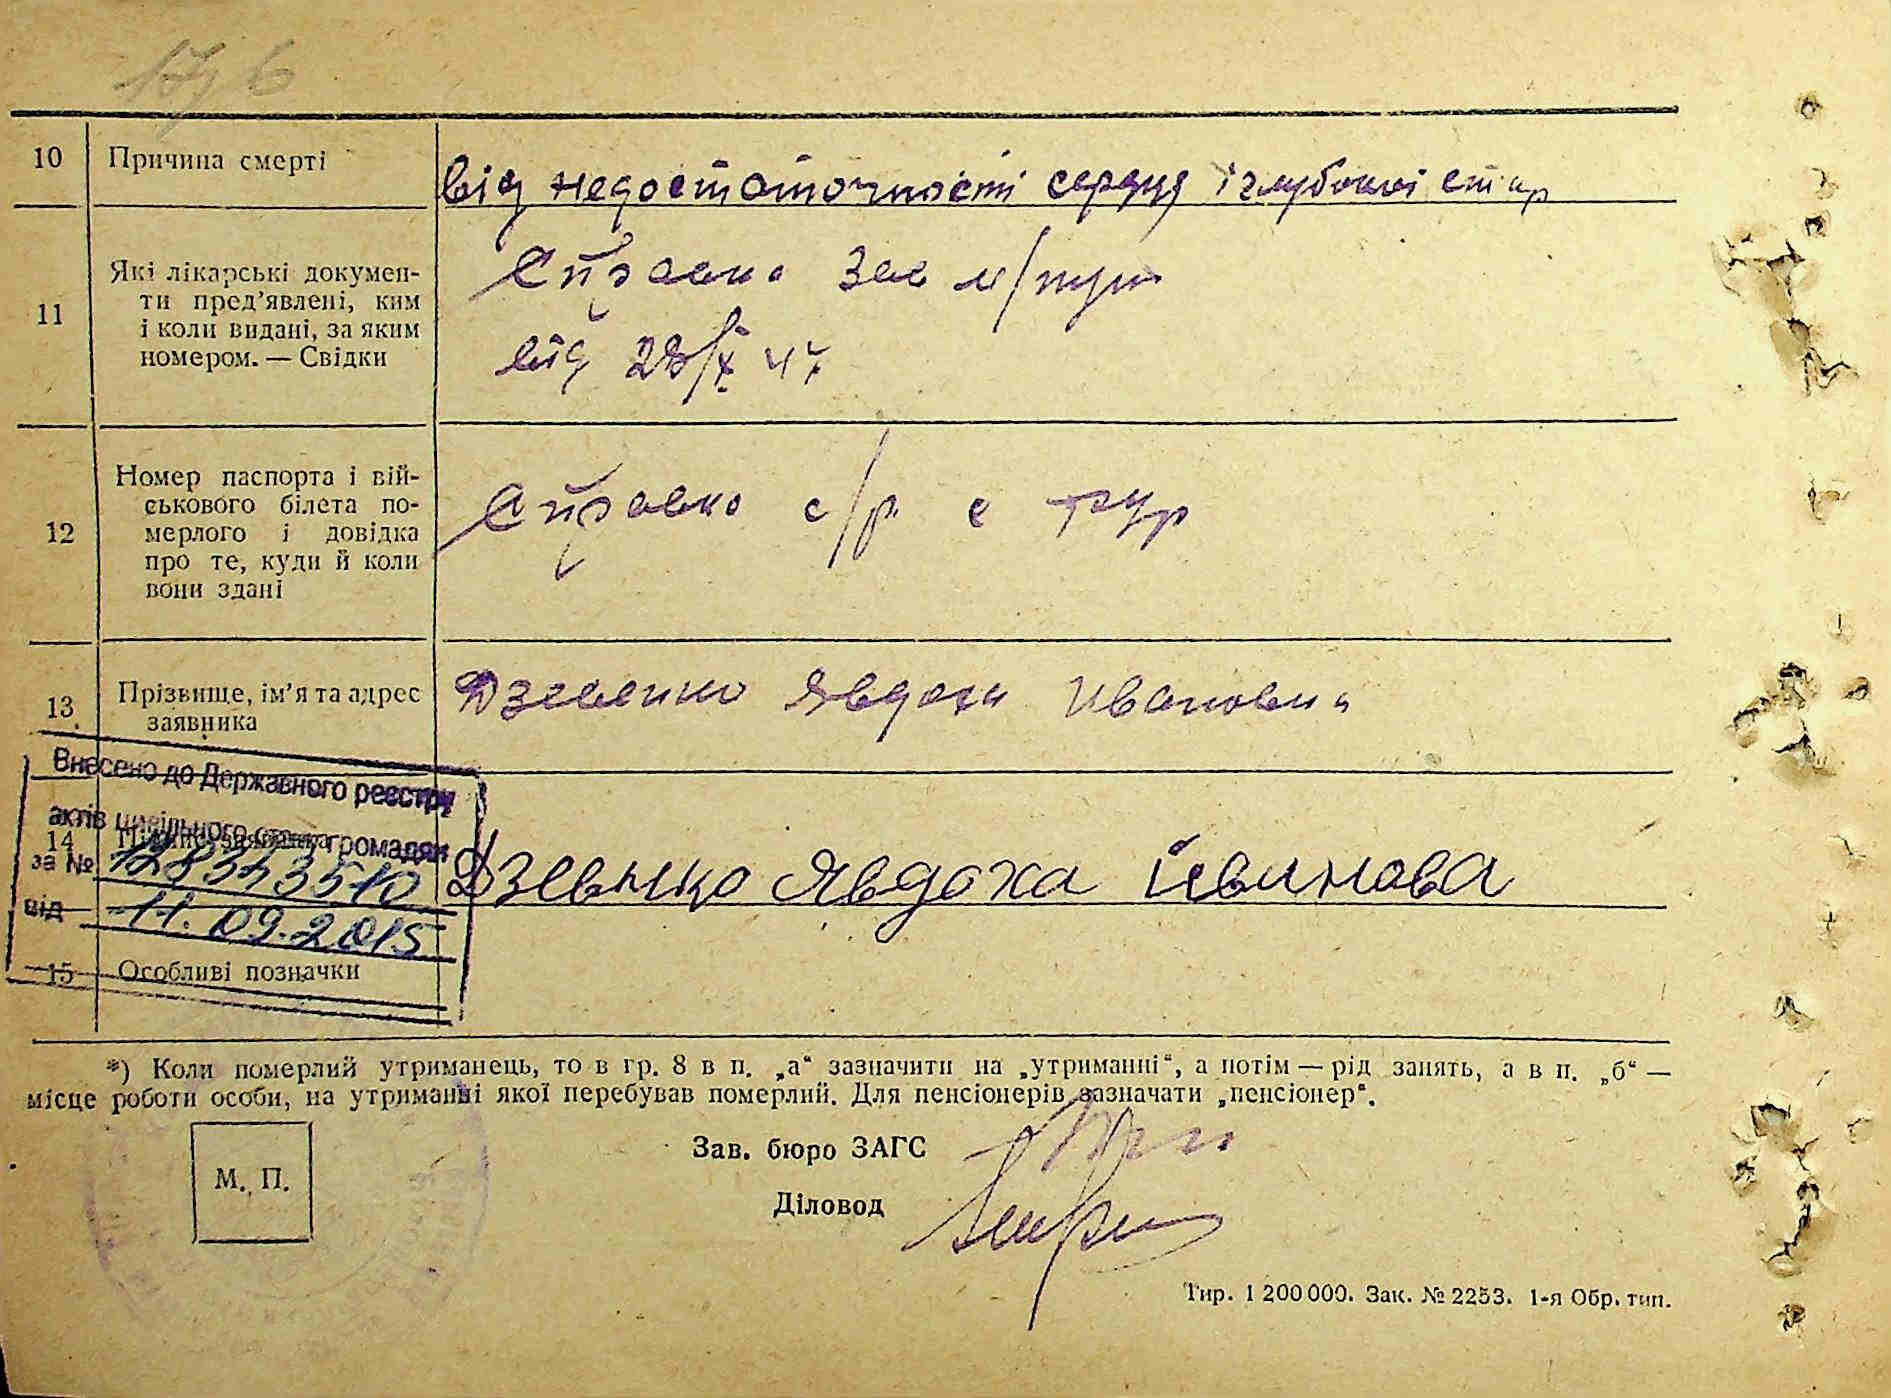 10 Причина смерті
від недостаточності серця і глубокої стар
11 Які лікарські докумен-
ти пред'явлені, ким
і коли видані, за яким
номером. — Свідки
Справка Зав м/пун
від 28/X 47
12 Номер паспорта і вій-
ськового білета по-
мерлого і довідка
про те, куди й коли
вони здані
Справка с/р с
13 Прізвище, ім'я та адрес
заявника
Явдоха Ивановна
Внесено до Державного реєстру
актів цивільного стану громадян
14 Підпис заявника
за №
Дзевенко Явдоха
від 11.09.2015
15 Особливі позначки
*) Коли померлий утриманець, то в гр. 8 в п. „а“ зазначити на „утриманні“, а потім — рід занять, а в п. „б“ —
місце роботи особи, на утриманні якої перебував померлий. Для пенсіонерів зазначати „пенсіонер“.
Зав. бюро ЗАГС
М. П.
Діловод
Тир. 1 200 000. Зак. № 2253. 1-я Обр. тип.